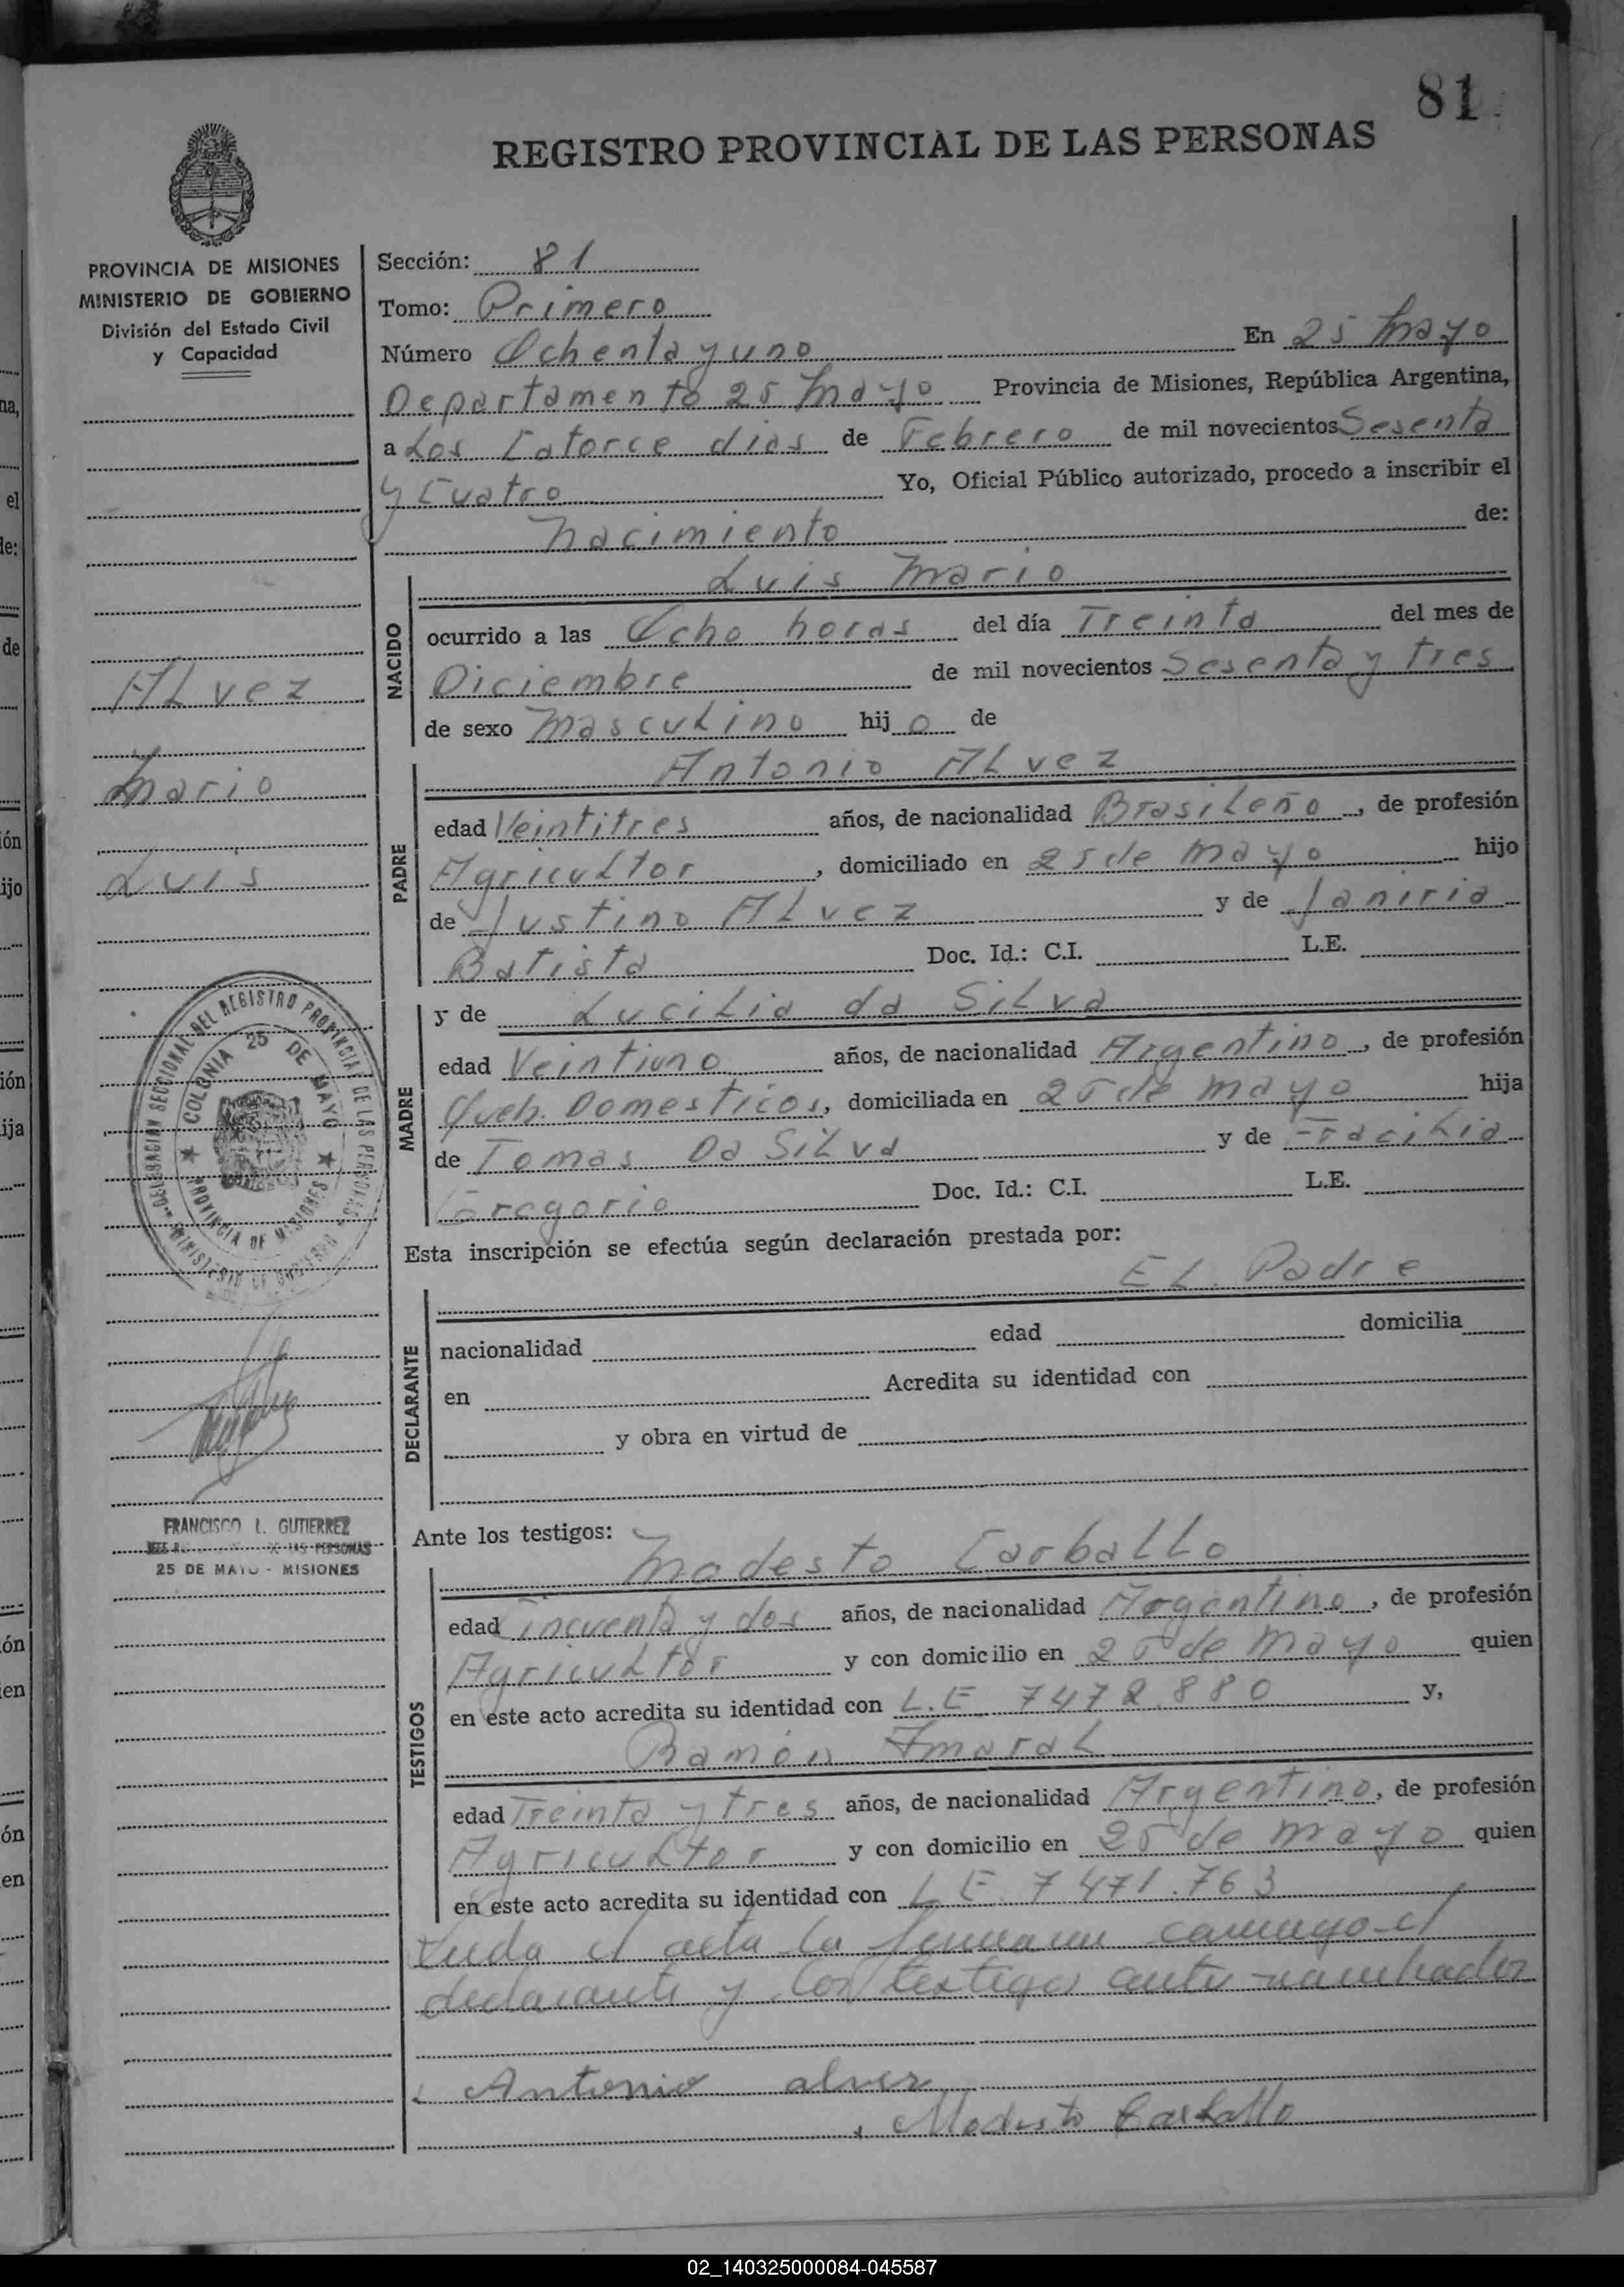 81
REGISTRO PROVINCIAL DE LAS PERSONAS
PROVINCIA DE MISIONES
MINISTERIO DE GOBIERNO
División del Estado Civil
y Capacidad
Sección: 81
Tomo: Primero
Número Ochenta y uno En 25 Mayo
Departamento 25 Mayo Provincia de Misiones, República Argentina,
a Los Catorce dias de Febrero de mil novecientos Sesenta
y Cuatro Yo, Oficial Público autorizado, procedo a inscribir el
Nacimiento de:
Luis Mario
NACIDO
ocurrido a las Ocho horas del día Treinta del mes de
Diciembre de mil novecientos Sesenta y tres
de sexo Masculino hijo de
ALvez
Mario
Luis
Antonio ALvez
PADRE
edad Veintitres años, de nacionalidad BrasiLeño, de profesión
Agricultor, domiciliado en 25 de Mayo hijo
de Justino ALvez y de Janiria
Batista Doc. Id.: C.I. L.E.
y de LuciLia da SiLva
MADRE
edad Veintiuno años, de nacionalidad Argentino, de profesión
Queh. Domesticos, domiciliada en 25 de Mayo hija
de Tomas Da SiLva y de
Gregorio Doc. Id.: C.I. L.E.
DELEGACION SECCIONAL DEL REGISTRO PROVINCIAL DE LAS PERSONAS
COLONIA 25 DE MAYO
PROVINCIA DE MISIONES
MINISTERIO DE GOBIERNO
Esta inscripción se efectúa según declaración prestada por:
EL Padre
DECLARANTE
nacionalidad edad domicilia
en Acredita su identidad con
y obra en virtud de
FRANCISCO L. GUTIERREZ
DE LAS PERSONAS
25 DE MAYO - MISIONES
Ante los testigos:
Modesto CarbaLLo
TESTIGOS
edad Cincuenta y dos años, de nacionalidad Argentino, de profesión
Agricultor y con domicilio en 25 de Mayo quien
en este acto acredita su identidad con L.E. 7472.880 y,
Ramón AmaraL
edad Treinta y tres años, de nacionalidad Argentino, de profesión
Agricultor y con domicilio en 25 de Mayo quien
en este acto acredita su identidad con L E. 7471.763
el acta la conmigo el
declarante y los testigos
Antonio alvez
Modesto Carballo
02_140325000084-045587